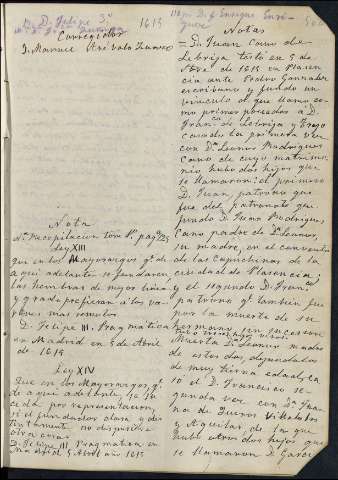 D. Felipe 3º
1615
Corregidor
D. Manuel Arévalo Zuazo
Nota
Nª Recopilacion tomo 1º pagª 725
Ley XIII
que en los Mayorazgos qe. de
aqui adelante se fundaren
las hembras de mejor linea
y grado prefieran á los va-
rones mas remotos.
D. Felipe III. Pragmatica
en Madrid en 5 de Abril
de 1615
Ley XIV
Que en los Mayorazgos, qe.
de aqui adelante, se su-
ceda por representacion,
si el fundador clara y dis-
tintamente no dispusiere
otra cosa.
D. Felipe III Pragmatica en
Madrid, 5 Abril año 1615
D. Enrique Enri-
quez
Notas
D. Juan Cano de
Lebrija testó en 5 de
de 1615 en Plasen-
cia ante Pedro Gonzalez
escribano y fundó un
vinculo al que llamó co-
mo primer poseedor á D.
Franco. de Lebrija y Trejo
casado la primera vez
con Dª Leonor Rodriguez
Cano de cuyo matrimo-
nio hubo dos hijos que
se llamaron: el primero
D. Juan, patrono que
fue del patronato que
fundó D. Juan Rodriguez
Cano padre de Dª Leonor,
su madre, en el convento
de las Capuchinas de la
ciudad de Plasencia;
y el segundo D. Franco.
patrono qe. tambien fue
por la muerte de su
hermano sin sucesion
Muerta Dª Leonor madre
de estos dos, dejandolos
de muy tierna edad, ca-
só el D. Francisco se-
gunda vez con Dª Jua-
na de Bueros Villalobos
y Aguilar, de la que
hubo otros dos hijos que
se llamaron D. Garci